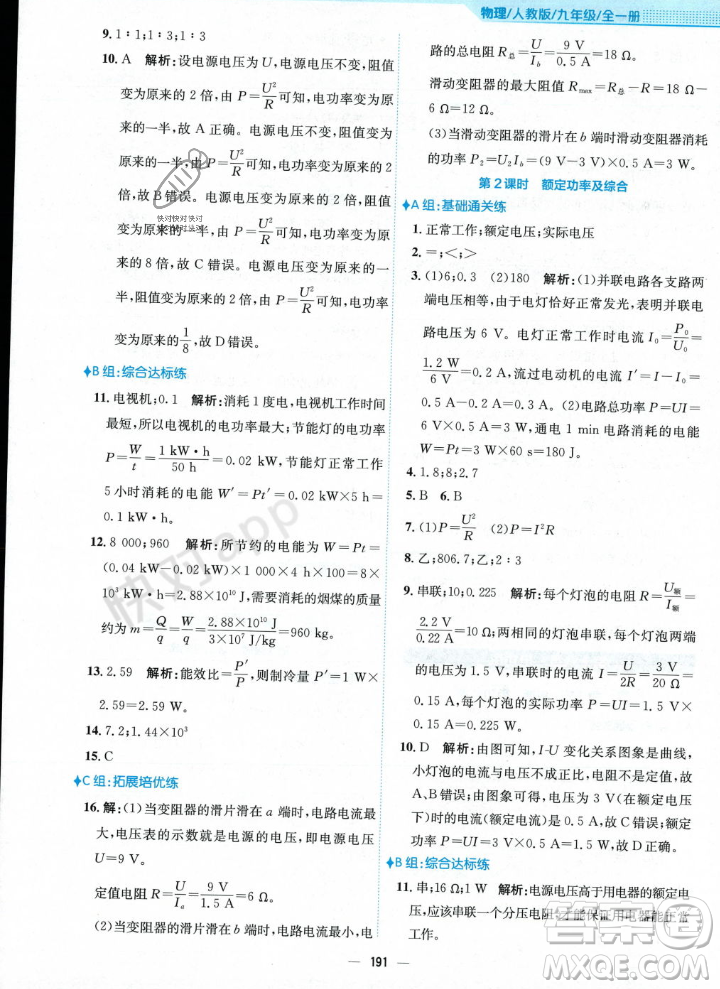 物理/人教版/九年级/全一册
9. 1∶1∶3;1∶3
10. A 解析:设电源电压为 U,电源电压不变,阻值
变为原来的 2 倍,由 P=U²/R 可知,电功率变为原
来的一半,故 A 正确。电源电压不变,阻值变为
原来的一半,由 P=U²/R 可知,电功率变为原来的 2
倍,故 B 错误。电源电压变为原来的 2 倍,阻值
变为原来的一半,由 P=U²/R 可知,电功率变为原
来的 8 倍,故 C 错误。电源电压变为原来的一
半,阻值变为原来的 2 倍,由 P=U²/R 可知,电功率
变为原来的 1/8,故 D 错误。
B 组:综合达标练
11. 电视机;0.1 解析:消耗 1 度电,电视机工作时间
最短,所以电视机的电功率最大;节能灯的电功率
P=W/t=1 kW·h/50 h=0.02 kW,节能灯正常工作
5 小时消耗的电能 W′=Pt′=0.02 kW×5 h=
0.1 kW·h。
12. 8 000;960 解析:所节约的电能为 W=Pt=
(0.04 kW-0.02 kW)×1 000×4 h×100=8×
10³ kW·h=2.88×10¹⁰ J,需要消耗的烟煤的质量
约为 m=Q/q=W/q=2.88×10¹⁰ J/3×10⁷ J/kg=960 kg。
13. 2.59 解析:能效比=P′/P,则制冷量 P′=1 kW×
2.59=2.59 kW。
14. 7.2;1.44×10³
15. C
C 组:拓展培优练
16. 解:(1)当变阻器的滑片滑在 a 端时,电路电流最
大,电压表的示数就是电源的电压,即电源电压
U=9 V。
定值电阻 R=U/Iₐ=9 V/1.5 A=6 Ω。
(2)当变阻器的滑片滑在 b 端时,电路电流最小,电
路的总电阻 R总=U/I_b=9 V/0.5 A=18 Ω,
滑动变阻器的最大阻值 Rmax=R总-R=18 Ω-
6 Ω=12 Ω。
(3)当滑动变阻器的滑片在 b 端时滑动变阻器消耗
的功率 P₂=U₂I_b=6 V×0.5 A=3 W。
第 2 课时 额定功率及综合
A 组:基础通关练
1. 正常工作;额定电压;实际电压
2. =;<;>
3. (1)6;0.3 (2)180 解析:(1)并联电路各支路两
端电压相等,由于电灯恰好正常发光,表明并联电
路电压为 6 V。电灯正常工作时电流 I₀=P₀/U₀=
1.2 W/6 V=0.2 A,流过电动机的电流 I′=I-I₀=
0.5 A-0.2 A=0.3 A。(2)电路总功率 P=UI=
6 V×0.5 A=3 W,通电 1 min 电路消耗的电能为
W=Pt=3 W×60 s=180 J。
4. 1.8;8;2.7
5. B 6. B
7. (1)P=U²/R (2)P=I²R
8. 乙;806.7;乙;2∶3
9. 串联;10;0.225 解析:每个灯泡的电阻 R=U额/I额=
2.2 V/0.22 A=10 Ω;两相同的灯泡串联,每个灯泡两端
的电压为 1.5 V,串联时的电流 I=U/2R=3 V/20 Ω=
0.15 A,每个灯泡的实际功率 P=UI=1.5 V×
0.15 A=0.225 W。
10. D 解析:由图可知,I-U 变化关系图象是曲线,
小灯泡的电流与电压不成正比,电阻是变化的,故
A、B 错误;由图象可得,电压为 3 V(额定电压)
时的电流(额定电流)为 0.5 A,故 C 错误;额定功
率 P=UI=3 V×0.5 A=1.5 W,故 D 正确。
B 组:综合达标练
11. 串;16 Ω;1 W 解析:电源电压高于用电器的额定电
压,应该串联一个分压电阻才能保证用电器能正常
工作。
191
快对快对快对
快对app
答案圈
MXQE.COM